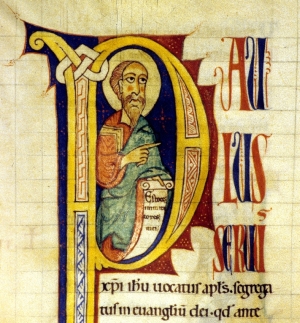 PAU
LUS
SERU̅
xp̅i ih̅u uocatus apl̅s. segrega
tus in euangl̅iu̅ dei. qd̅ ante